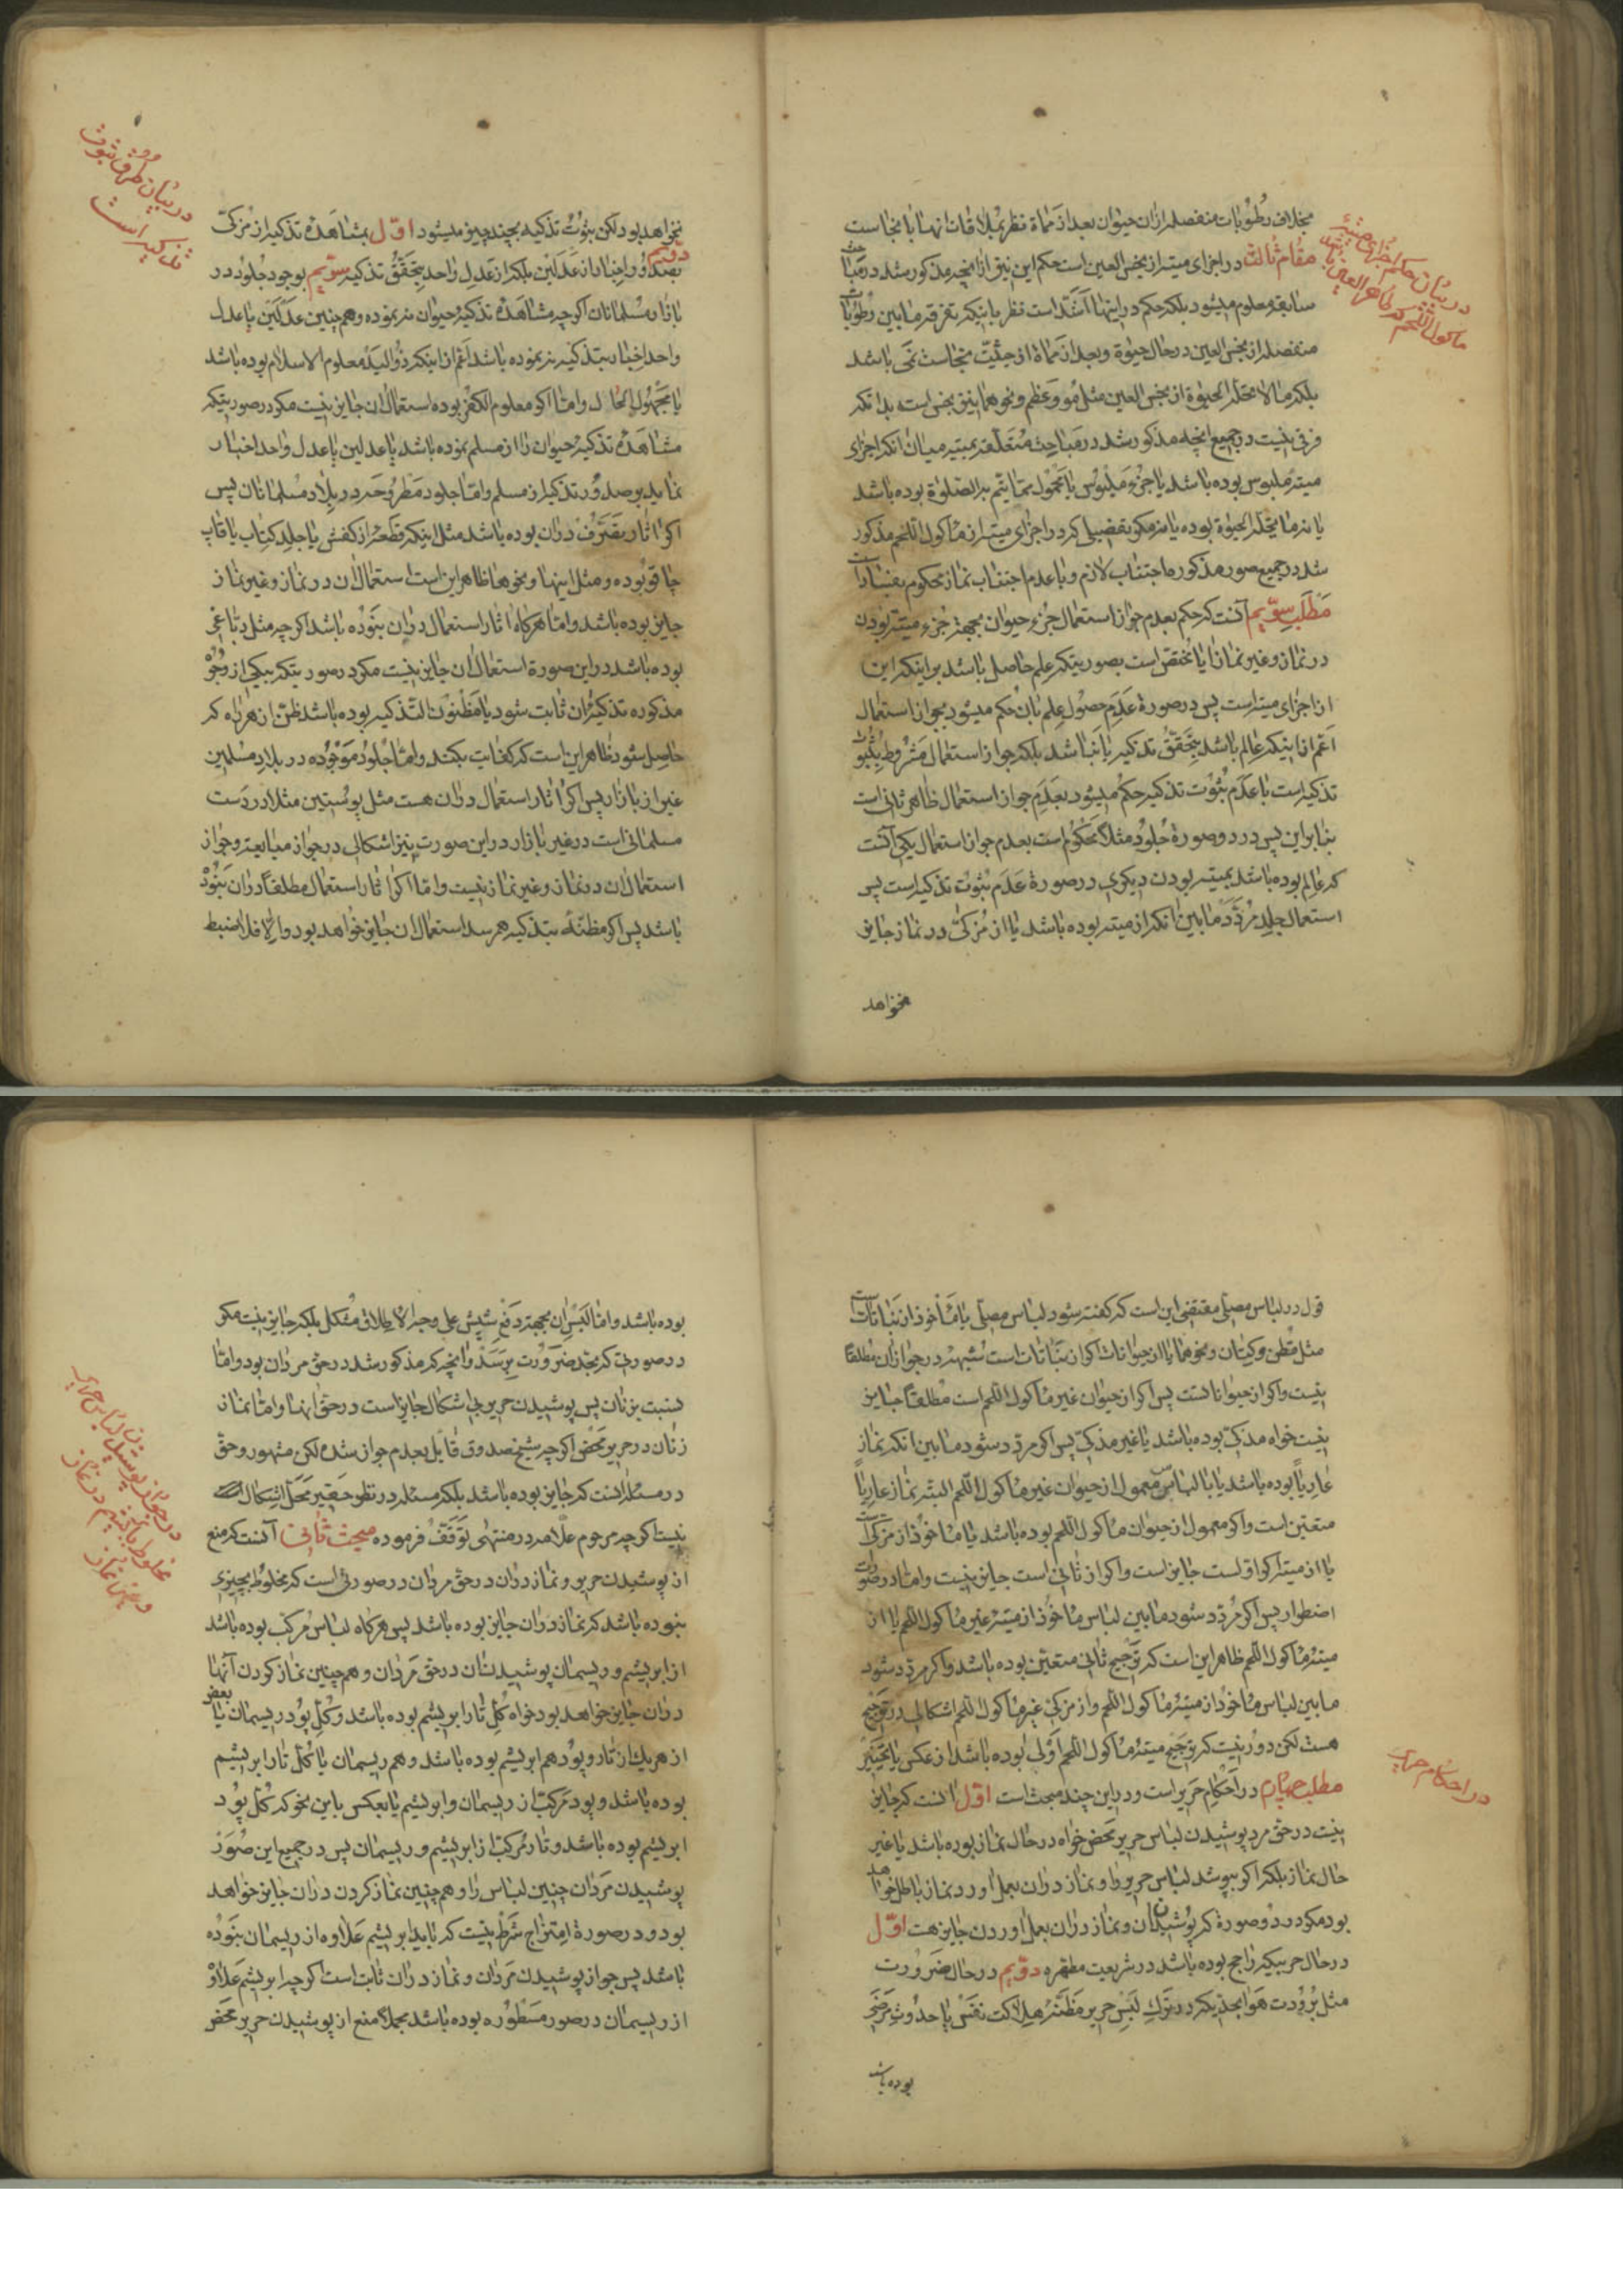 بخلاف رطوبات منفصله ازان حیوان بعد از مماة نظر بملاقات انها با نجاست
مقام ثالث در اجزای میته از نجس العین است حکم این نیز از انچه مذکور شد در مباحث
سابقه معلوم میشود بلکه حکم در اینها اشد است نظر باینکه تفرقه مابین رطوبات
منفصله از نجس العین در حال حیوة و بعد از مماة از حیثیت نجاست نمی باشد
بلکه مالا تحله الحیوة از نجس العین مثل مو و عظم و نحو هما نیز نجس است بدانکه
فرقی نیست در جمیع انچه مذکور شد در مباحث متعلقه بمیته میان انکه اجزای
میته ملبوس بوده باشد یا جزء ملبوس یا محمول مما یتم به الصلوة بوده باشد
یا نه مما تحله الحیوة بوده یا نه مگر تفصیلی که در اجزای میته از ماکول اللحم مذکور
شد در جمیع صور مذکوره اجتناب لازم و با عدم اجتناب نماز محکوم بفساد است
مطلب سویم آنست که حکم بعدم جواز استعمال جزء حیوان بجهة جزء میته بودن
در نماز و غیر نماز ایا مختص است بصورتیکه علم حاصل باشد بر اینکه این
از اجزای میته است پس در صورة عدم حصول علم بان حکم میشود بجواز استعمال
اعم از اینکه عالم باشد بتحقق تذکیه یا نباشد بلکه جواز استعمال مشروط بثبوت
تذکیه است با عدم ثبوت تذکیه حکم میشود بعدم جواز استعمال ظاهر ثانی است
بنابراین پس در دو صورة جلود مثلا محکوم است بعدم جواز استعمال یکی آنست
که عالم بوده باشد بمیته بودن دیگری در صورة عدم ثبوت تذکیه است پس
استعمال جلد مردد مابین انکه از میته بوده باشد یا از مزکی در نماز جایز
نخواهد
در بیان حکم اجزای میتهٔ
ماکول اللحم که طاهر العین باشد
نخواهد بود لکن ثبوت تذکیه بچند چیز میشود اول مشاهدهٔ تذکیه از مزکی
دویم بصدور اخبار از عدلین بلکه از عدل واحد بتحقق تذکیه سویم بوجود جلود در
بازار مسلمانان اگر چه مشاهدهٔ تذکیهٔ حیوان نه نموده و هم چنین عدلین یا عدل
واحد اخبار بتذکیه نه نموده باشد اعم از اینکه ذو الید معلوم الاسلام بوده باشد
یا مجهول الحال و اما اگر معلوم الکفر بوده استعمال ان جایز نیست مگر در صورتیکه
مشاهدهٔ تذکیهٔ حیوان را از مسلم نموده باشد یا عدلین یا عدل واحد اخبار
نماید بصدور تذکیه از مسلم و اما جلود مطروحه در بلاد مسلمانان پس
اگر اثار تصرف دران بوده باشد مثل اینکه قطعهٔ از کفش یا جلد کتاب یا قاب
چاقو بوده و مثل اینها و نحو ها ظاهر این است استعمال ان در نماز و غیر نماز
جایز بوده باشد و اما هرگاه اثار استعمال دران نبوده باشد اگر چه مثل دباغی
بوده باشد در این صورة استعمال ان جایز نیست مگر در صورتیکه بیکی از وجوه
مذکوره تذکیهٔ ان ثابت شود یا مظنون التذکیه بوده باشد ظن از هر راه که
حاصل شود ظاهر این است که کفایت بکند و اما جلود موجوده در بلاد مسلمین
غیر از بازار پس اگر اثار استعمال دران هست مثل پوستین مثلا در دست
مسلمانی است در غیر بازار در این صورت نیز اشکالی در جواز مبایعه و جواز
استعمال ان در نماز و غیر نماز نیست و اما اگر اثار استعمال مطلقا دران نبوده
باشد پس اگر مظنه بتذکیه هم رسد استعمال ان جایز خواهد بود و الا فلا ضبط
در بیان طرق ثبوت
تذکیه است
قول در لباس مصلی مقتضی این است که گفته شود لباس مصلی یا ماخوذ از نباتات است
مثل قطن و کتان و نحو هما یا از حیوانات اگر از نباتات است شبههٔ در جواز ان مطلقا
نیست و اگر از حیوانات است پس اگر از حیوان غیر ماکول اللحم است مطلقا جایز
نیست خواه مذکی بوده باشد یا غیر مذکی پس اگر مردد شود مابین انکه نماز
عاریا بوده باشد یا با لباس معمول از حیوان غیر ماکول اللحم البته نماز عاریا
متعین است و اگر معمول از حیوان ماکول اللحم بوده باشد یا ماخوذ از مزکی است
یا از میته اگر اول است جایز است و اگر از ثانی است جایز نیست و اما در صورت
اضطرار پس اگر مردد شود مابین لباس ماخوذ از میتهٔ غیر ماکول اللحم یا از
میتهٔ ماکول اللحم ظاهر این است که ترجیح ثانی متعین بوده باشد و اگر مردد شود
مابین لباس ماخوذ از میتهٔ ماکول اللحم و از مزکی غیر ماکول اللحم اشکالی در ترجیح
هست لکن دور نیست که ترجیح میتهٔ ماکول اللحم اولی بوده باشد از عکس یا تخییر
مطلب چهارم در احکام حریر است و در این چند مبحث است اول انست که جایز
نیست در حق مرد پوشیدن لباس حریر محض خواه در حال نماز بوده باشد یا غیر
حال نماز بلکه اگر بپوشد لباس حریر را و نماز دران بعمل اورد نماز باطل خواهد
بود مگر در دو صورة که پوشیدن ان و نماز دران بعمل اوردن جایز هست اول
در حال حربیکه راجح بوده باشد در شریعت مطهره دویم در حال ضرورت
مثل برودت هوا بحدیکه در ترک لبس حریر مظنهٔ هلاکت نفس یا حدوث مرضی
بوده باشد
در احکام حریر
بوده باشد و اما لبس ان بجهة دفع شپش علی وجه الاطلاق مشکل بلکه جایز نیست مگر
در صورتی که بحد ضرورت برسد و انچه که مذکور شد در حق مردان بود و اما
نسبت بزنان پس پوشیدن حریر بی اشکال جایز است در حق انها و اما نماز
زنان در حریر محض اگر چه شیخ صدوق قایل بعدم جواز شده لکن مشهور و حق
در مسئله انست که جایز بوده باشد بلکه مسئله در نظر حقیر محل اشکال
نیست اگر چه مرحوم علامه در منتهی توقف فرموده مبحث ثانی آنست که منع
از پوشیدن حریر و نماز دران در حق مردان در صورتی است که مخلوط بچیزی
نبوده باشد که نماز دران جایز بوده باشد پس هرگاه لباس مرکب بوده باشد
از ابریشم و ریسمان پوشیدن ان در حق مردان و هم چنین نماز کردن آنها
دران جایز خواهد بود خواه کل تار ابریشم بوده باشد و کل پود ریسمان یا بعض
از هر یک از تار و پود هم ابریشم بوده باشد و هم ریسمان یا کل تار ابریشم
بوده باشد و پود مرکب از ریسمان و ابریشم یا بعکس باین نحو که کل پود
ابریشم بوده باشد و تار مرکب از ابریشم و ریسمان پس در جمیع این صور
پوشیدن مردان چنین لباس را و هم چنین نماز کردن دران جایز خواهد
بود و در صورة امتزاج شرط نیست که باید ابریشم علاوه از ریسمان نبوده
باشد پس جواز پوشیدن مردان و نماز دران ثابت است اگر چه ابریشم علاوه
از ریسمان در صور مسطوره بوده باشد مجملا منع از پوشیدن حریر محض
در جواز پوشیدن لباس حریر
مخلوط بابریشم در نماز
و غیر نماز